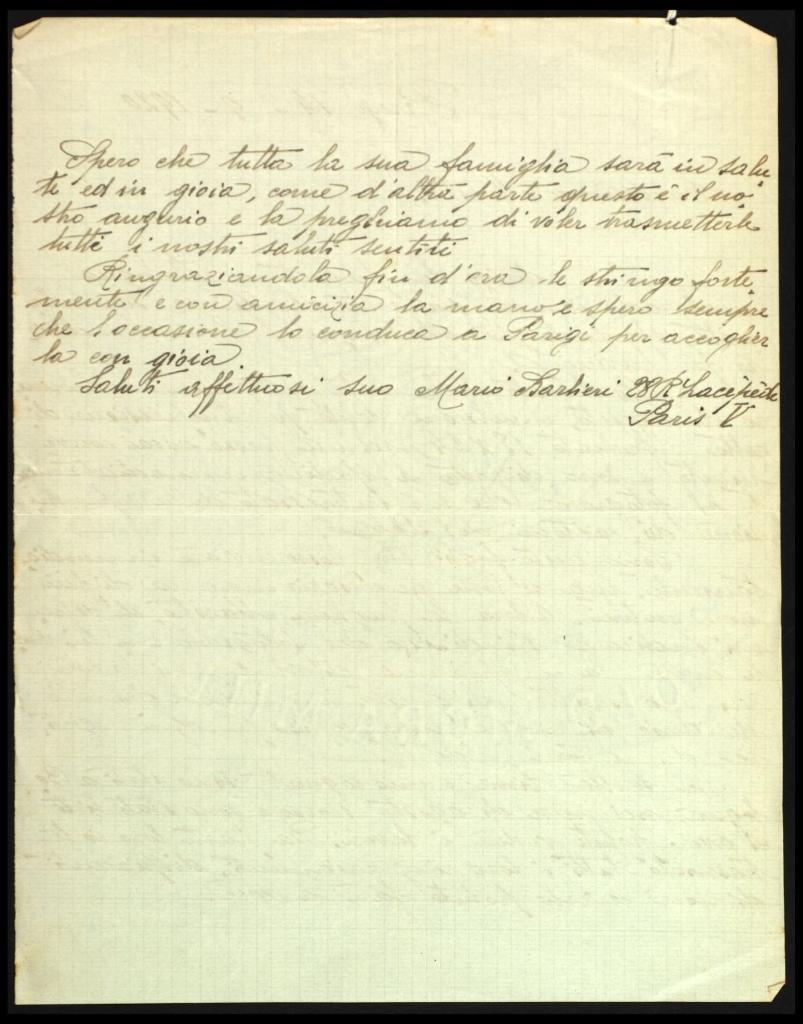 Spero che tutta la sua famiglia sarà in salu
te ed in gioia, come d'altra parte questo è il no
stro augurio e la preghiamo di voler trasmetterle
tutti i nostri saluti sentiti
Ringraziandola fin d'ora le stringo forte
mente e con amicizia la mano e spero sempre
che l'occasione lo conduca a Parigi per accoglier
la con gioia
Saluti affettuosi suo Mario Barbieri 28 R Lacépède
Paris V